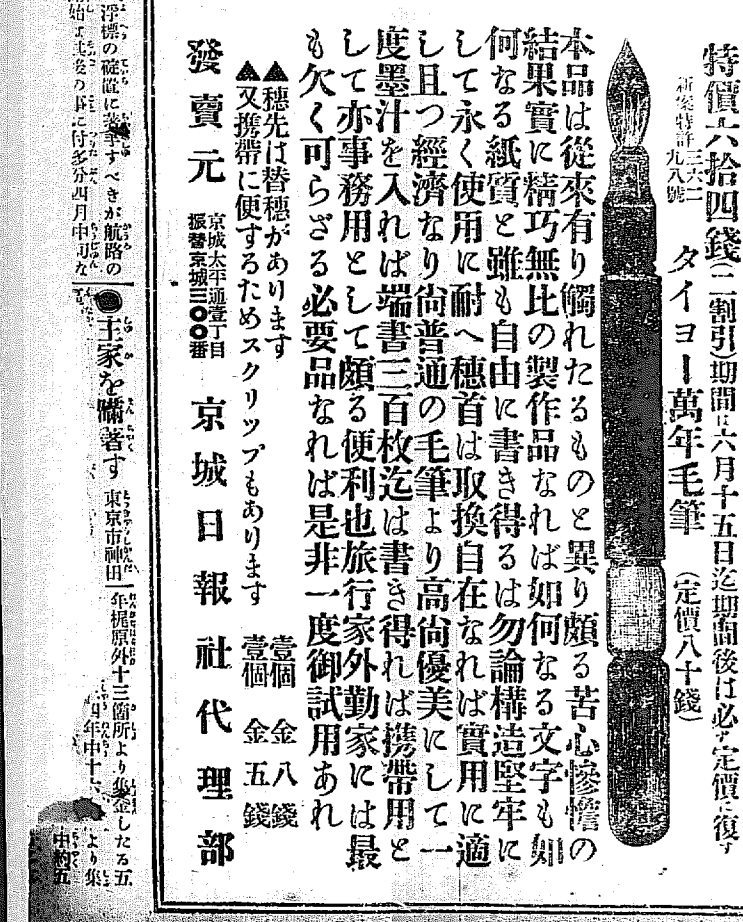 特價六拾四錢(二割引)期間は六月十五日迄期間後は必ず定價に復す
新案特許三六二九八號
タイヨー萬年毛筆 (定價八十錢)
本品は從來有り觸れたるものと異り頗る苦心慘憺の
結果實に精巧無比の製作品なれば如何なる文字も如
何なる紙質と雖も自由に書き得るは勿論構造堅牢に
して永く使用に耐へ穗首は取換自在なれば實用に適
し且つ經濟なり尙普通の毛筆より高尙優美にして一
度墨汁を入れば端書三百枚迄は書き得れば携帶用と
して亦事務用として頗る便利也旅行家外勤家には最
も欠く可らざる必要品なれば是非一度御試用あれ
▲穗先は替穗があります 壹個 金八錢
▲又携帶に便するためスクリツプもあります 壹個 金五錢
發賣元 京城太平通壹丁目 振替京城三〇〇番 京城日報社代理部
浮標の確置に着手すべきが航路の
其後の事に付多分四月中旬な
●主家を瞞著す 東京市神田
年梶原外十三箇所より集金したる五
四年中十六
より集
中約五